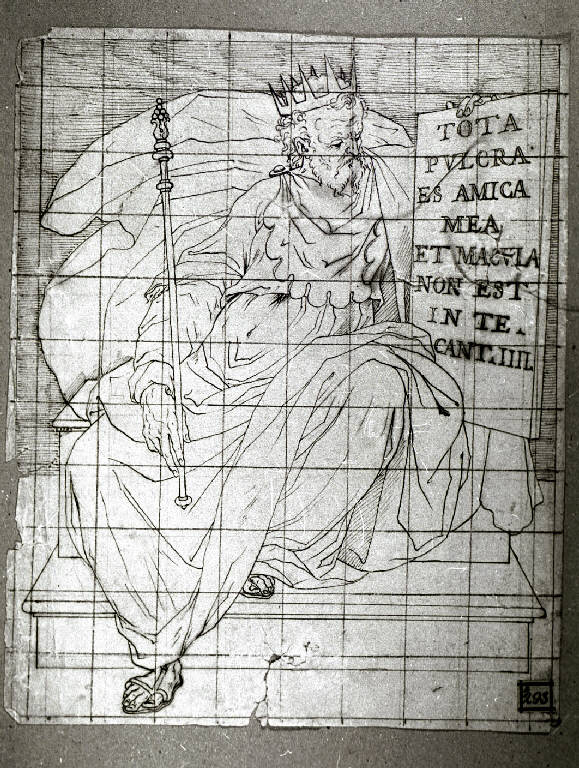 TOTA
PVLCRA
ES AMICA
MEA,
ET MACVLA
NON EST
IN TE.
CANT. IIII.
293